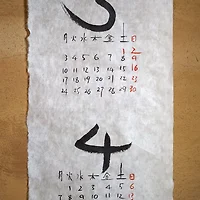 3
月火水木金土日
1 2
3 4 5 6 7 8 9
10 11 12 13 14 15 16
17 18 19 20 21 22 23
24 25 26 27 28 29 30
4
月火水木金土日
1 2 3 4 5 6
7 8 9 10 11 12 13